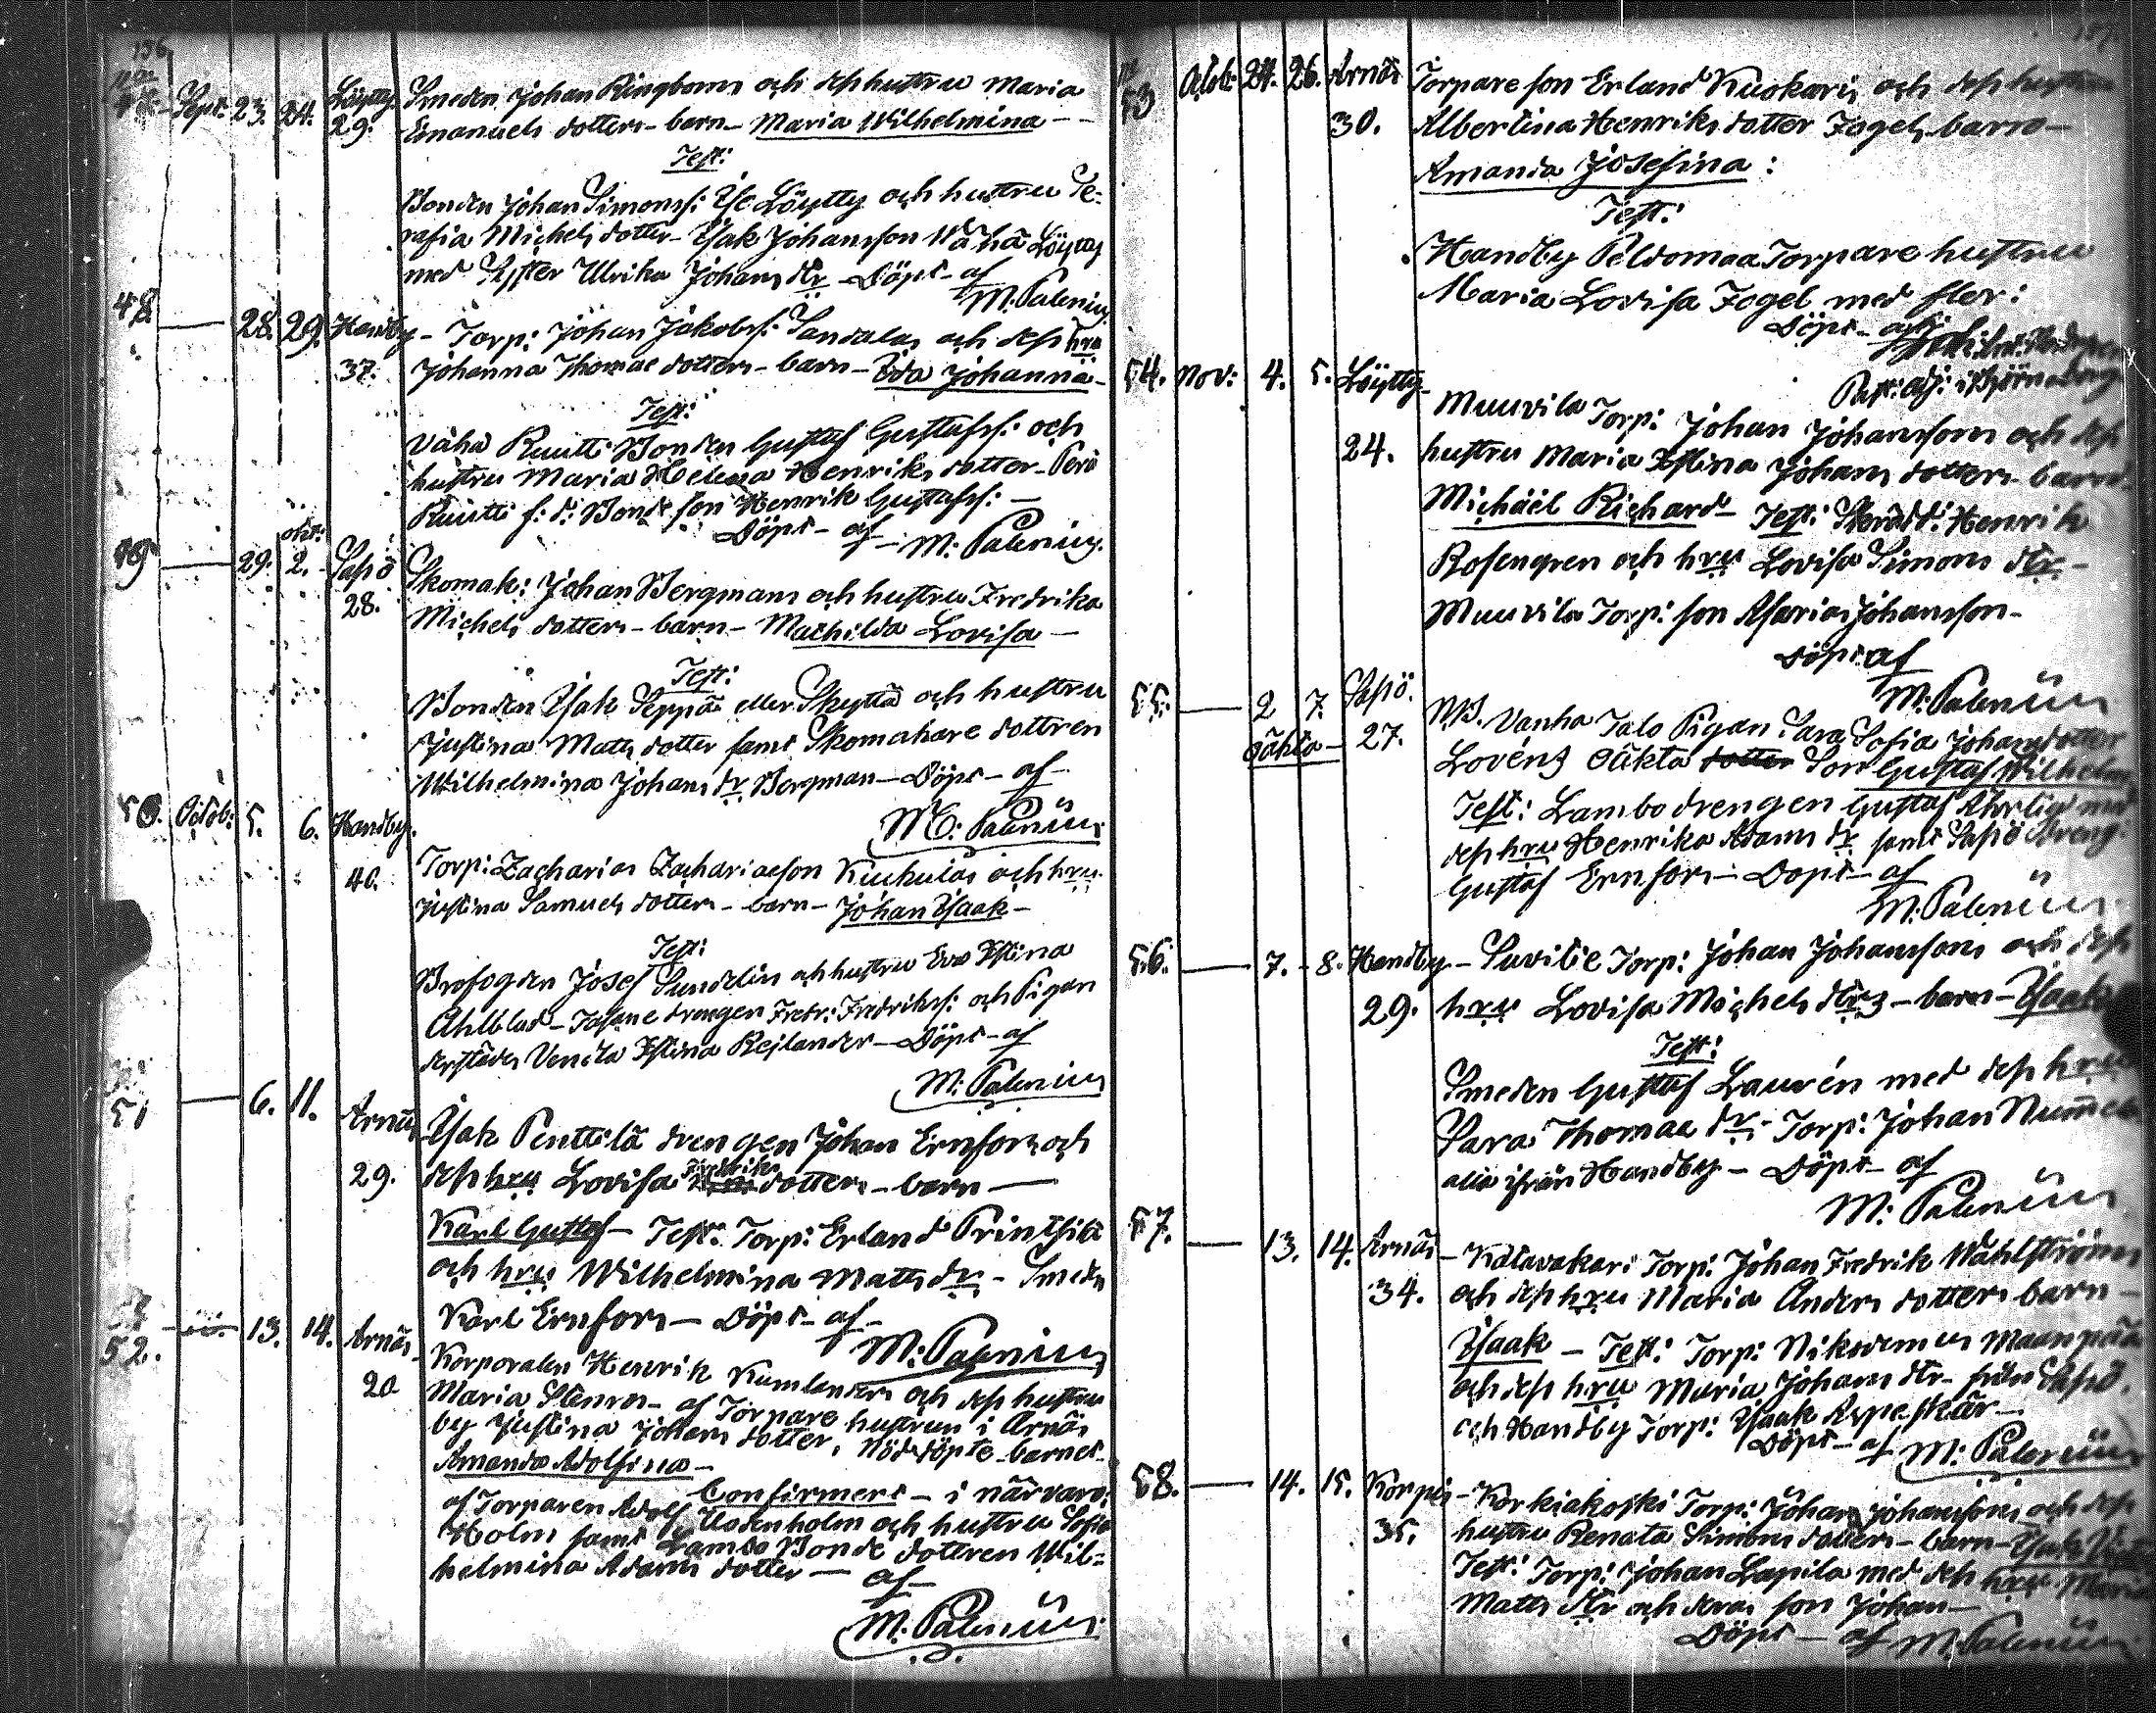 156
47. Sept: 23. 24. Löytty Smeden Johan Ringboms och dess hustru Maria
29. Emanuels dotters - barn - Maria Wilhelmina -
Test:
Bonden Johan Simonss: Iso Löytty och hustru Se-
rafia Michels dotter - Isak Johansson Wähä Löytty
med Syster Ulrika Johans dtr - Döpt - af
M. Palenius.
48. 28. 29. Handby - Torp: Johan Jakobss: Sandalas och dess hru
37. Johanna Thomae dotters - barn - Eda Johanna -
Test:
Vähä Ruutti Bonden Gustaf Gustafss: och
hustru Maria Helena Henriks dotter - Perä
Ruutti f: d: Bonde son Henrik Gustafss: -
Döpt - af - M: Palenius.
okt:
49 29. 2. Sassö Skomak: Johan Bergmans och hustru Fredrika
28. Michels dotters - barn - Mathilda Lovisa -
Test:
Bonden Isak Seppä eller Skyttä och hustru
Justina Matts dotter samt Skomakare dottren
Wilhelmina Johans dr. Bergman - Döpt - af -
M: Palenius
50. Octob: 5. 6. Handby.
40. Torp: Zacharias Zachariaeson Kuckulas och hru
Justina Samuels dotters - barn - Johan Isaak -
Test:
Brofogden Josef Sundelin och hustru Eva Stina
Ahlblad - drengen Fredr: Fredrikss: och Pigan
derstädes Venda Stina Rejlander - Döpt - af
M: Palenius
51 6. 11. Arnäs Isak Penttilä drengen Johan Ernfors och
29. dess hru Lovisa Fredriks dotters - barn -
Karl Gustaf - Test: Torp: Erland Printsilä
och hru Wilhelmina Matts dr - Smeden
Karl Ernfors - Döpt - af -
M: Palenius
52. 13. 14. Arnäs Korporalen Henrik Kumlanders och dess hustru
20 Maria Stenros - af Torpare hustrun i Arnäs
by Justina Johans dotter, Nöddöpte barnet -
Amanda Adolfina -
Confirmert - i närvaro:
af Torparen Adolf Uddenholm och hustru Sofia
Holm samt Lambo Bonde dottren Wil-
helmina Adams dotter - af -
M. Palenius
53 Octob: 24. 26. Arnäs Torpare son Erland Kuokaris och dess hustru
30. Albertina Henriks dotter Fogels barn -
Amanda Josefina:
Test:
Handby Peldomaa Torpare hustru
Maria Lovisa Fogel med fler:
Döpt - af
Past: adj: i Björneborg
54. Nov: 4. 5. Löytty - Muuvila Torp: Johan Johanssons och dess
24. hustru Maria Stina Johans dotters - barn -
Michäel Richard - Test: Skrädd: Henrik
Rosengren och hru Lovisa Simons dtr -
Muuvila Torp: son Asarias Johansson -
Döpt af
M: Palenius
55. 2 7. Sassö. NB. Vanha Talo Pigan Sara Sofia Johansdotter
oäkta - 27. Lovéns oäkta dotter Son Gustaf Wilhelm
Test: Lambo drengen Gustaf med
dess hru Henrika Adams dr samt Sassö dreng:
Gustaf Ernfors - Döpt - af
M: Palenius
56. 7. 8. Handby - Suvitie Torp: Johan Johanssons och dess
29. hru Lovisa Michels dtrs - barn - Isaak
Test:
Smeden Gustaf Laurén med dess hru
Sara Thomae dr - Torp: Johan
alla ifrån Handby - Döpt - af
M: Palenius
57. 13. 14. Arnäs - Kalavakari Torp: Johan Fredrik Wahlströms
34. och dess hru Maria Anders dotters barn -
Isaak - Test: Torp: Nikodemus Maanpää
och dess hru Maria Johans dtr - från Sassö.
och Handby Torp: Isaak Aspeskär -
Döpt - af M: Palenius
58. 14. 15. Korpis - Korkiakoski Torp: Johan Johanssons och dess
35. hustru Renata Simons dotters - barn - Isak
Test: Torp: Johan Lapila med dess hru Maria
Matts dtr och deras son Johan -
Döpt - af M. Palenius